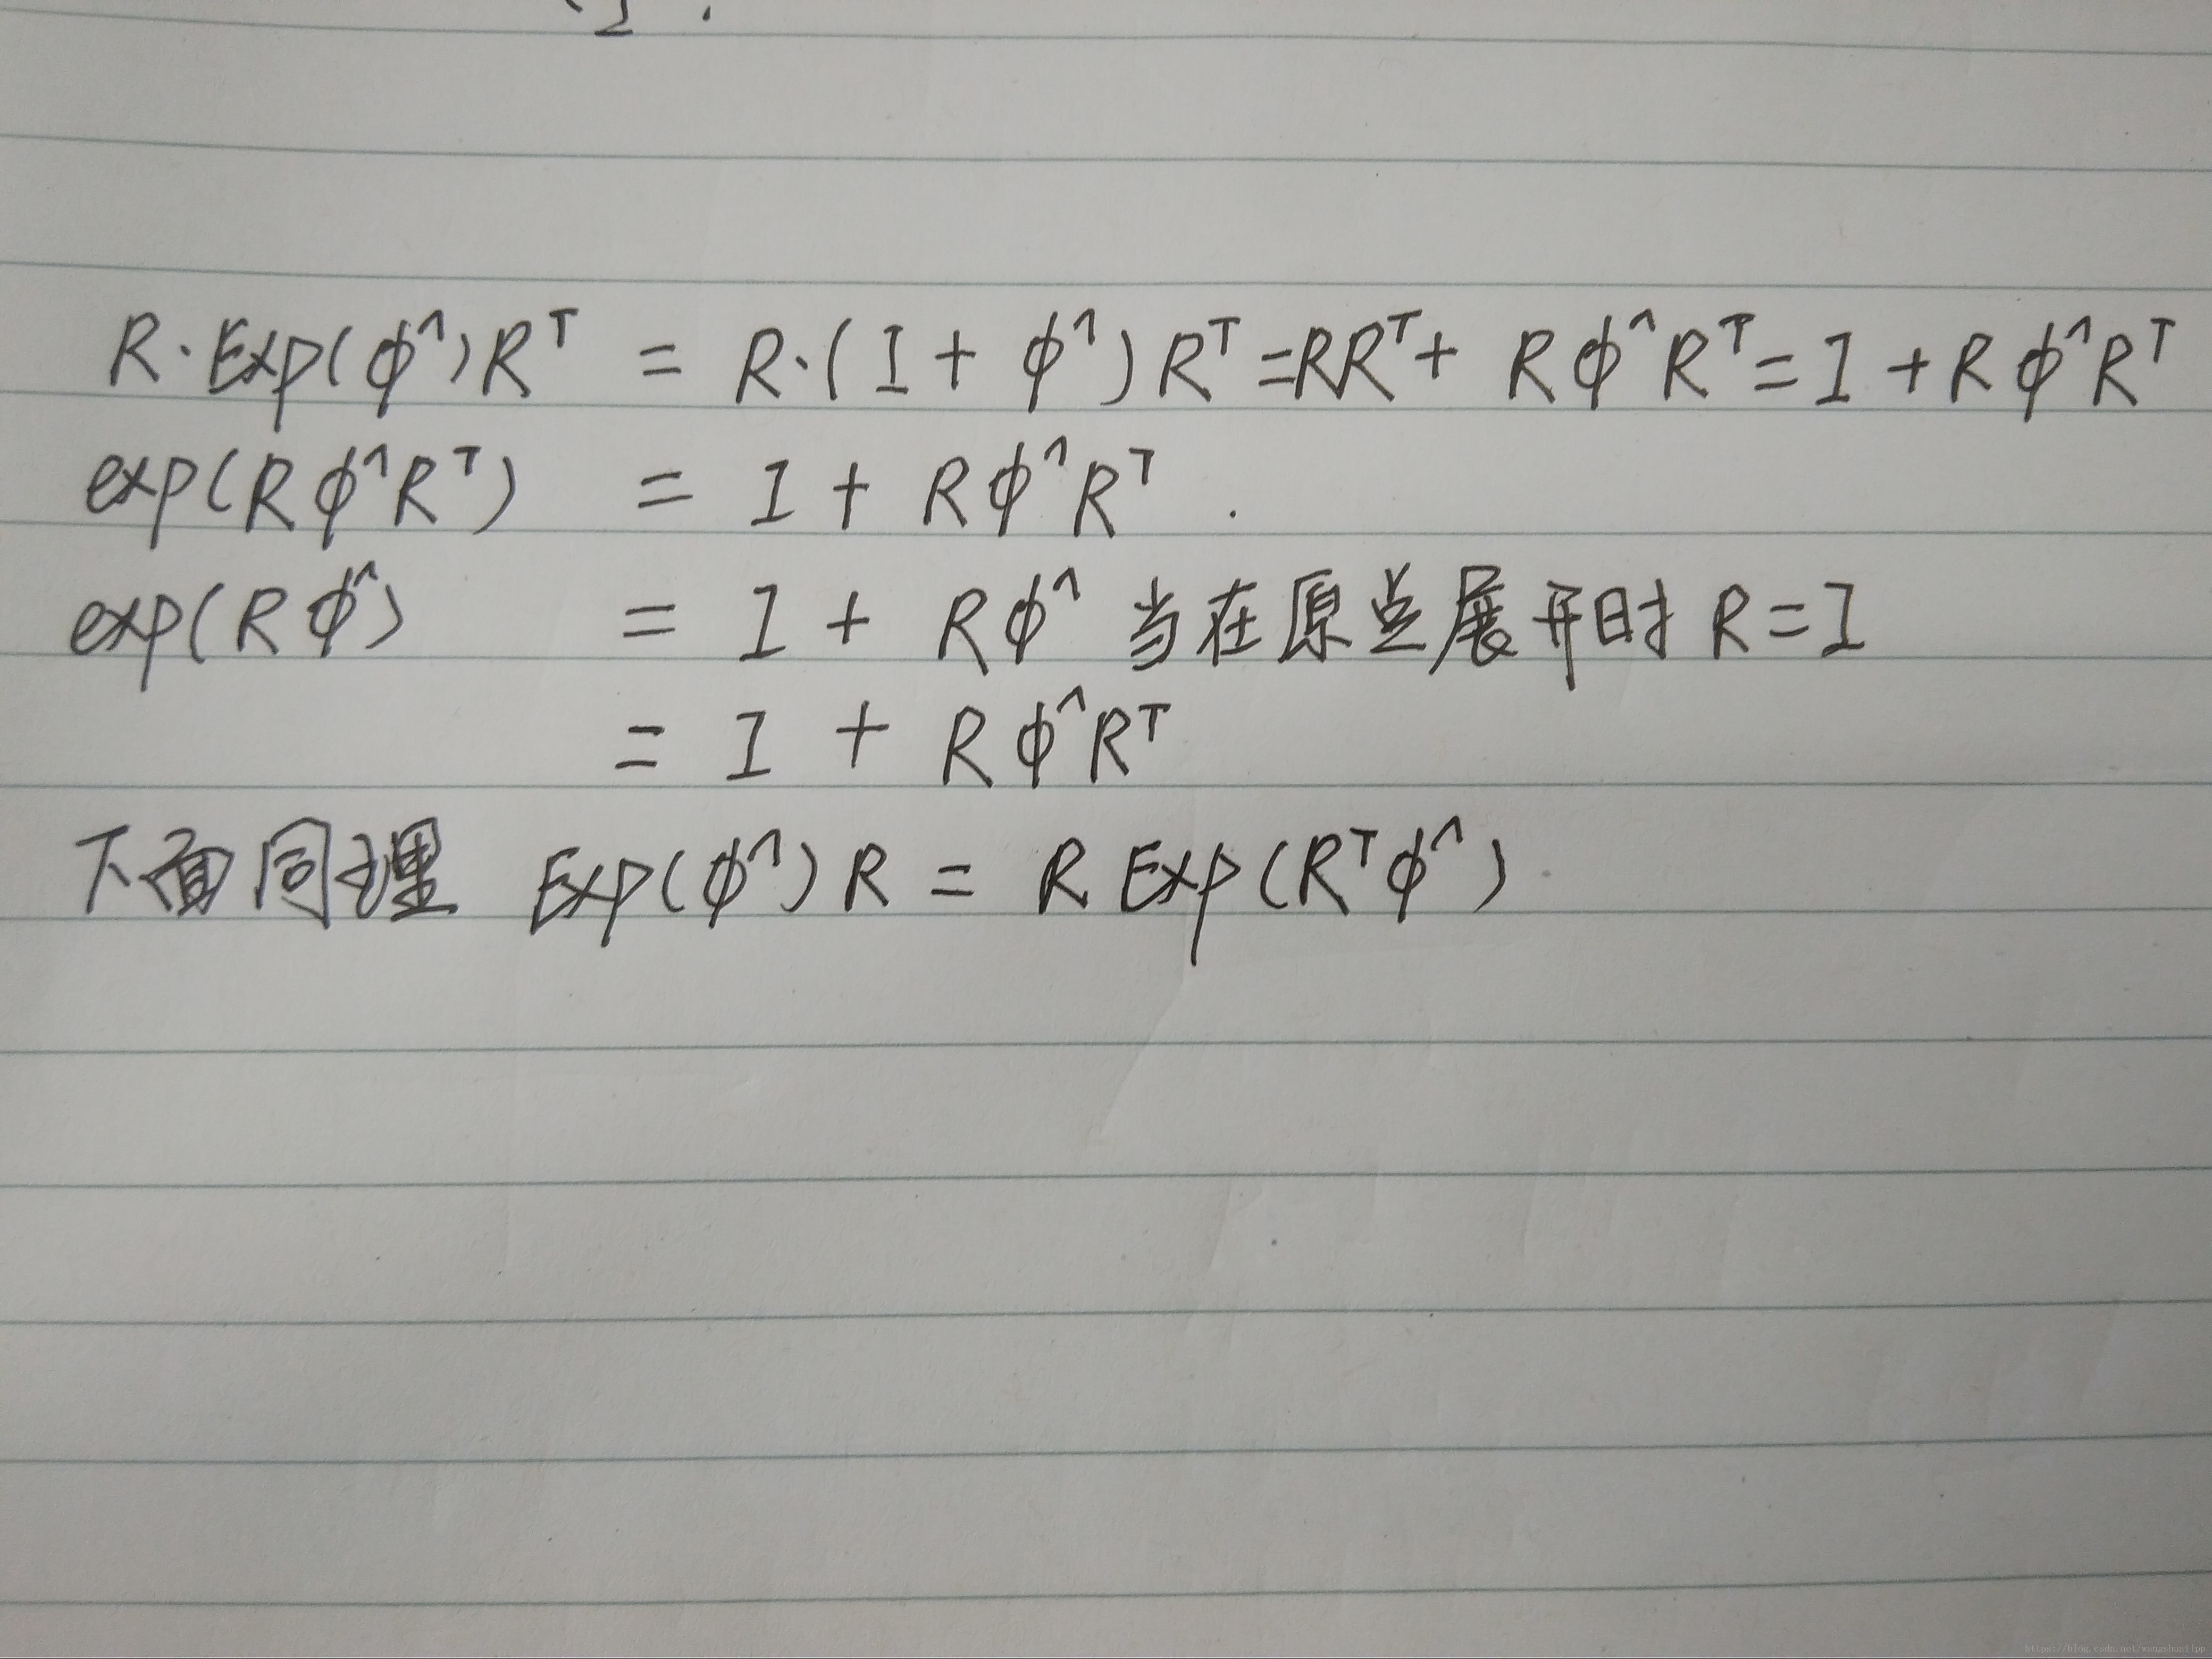 R·Exp(ϕ^)Rᵀ = R·(I + ϕ^)Rᵀ =RRᵀ+ Rϕ^Rᵀ=I+Rϕ^Rᵀ
exp(Rϕ^Rᵀ) = I + Rϕ^Rᵀ.
exp(Rϕ^) = I + Rϕ^ 当在原点展开时 R=I
= I + Rϕ^Rᵀ
下面同理 Exp(ϕ^)R = R Exp(Rᵀϕ^)
https://blog.csdn.net/wangshuailpp